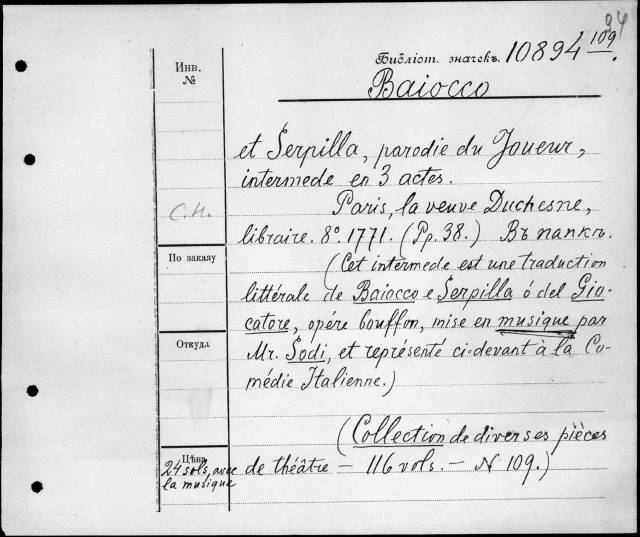 94
Инв.
№
Библіот. значекъ. 10894 109.
Baiocco
et Serpilla, parodie du Joueur,
intermede en 3 actes.
С.Н.
Paris, la veuve Duchesne,
libraire. 8º. 1771. (Pp. 38.) Въ папкѣ.
По заказу
(Cet intermede est une traduction
littérale de Baiocco e Serpilla ó del Gio-
catore, opére bouffon, mise en musique par
Откуда
Mr. Sodi, et représenté ci-devant à la Co-
médie Italienne.)
(Collection de diverses pièces
Цѣна
24 sols, avec
la musique
de théâtre – 116 vols. – N 109.)